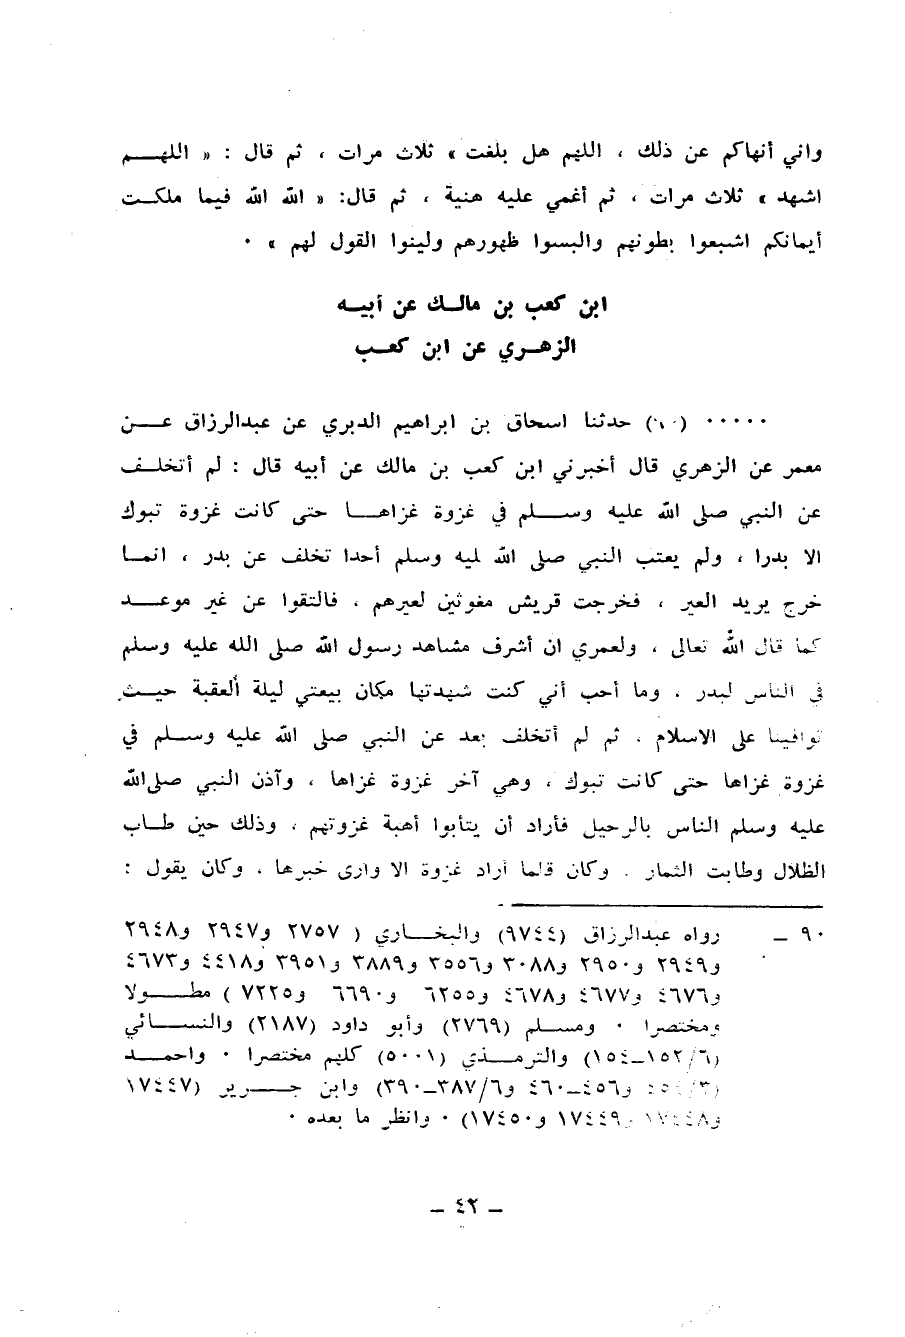 واني أنهاكم عن ذلك ، اللهم هل بلغت » ثلاث مرات ، ثم قال : « اللهم
اشهد » ثلاث مرات ، ثم أغمي عليه هنية ، ثم قال: « الله الله فيما ملكت
أيمانكم اشبعوا بطونهم والبسوا ظهورهم ولينوا القول لهم » ٠
ابن كعب بن مالك عن أبيه
الزهري عن ابن كعب
٠٠٠٠٠ (٩٠) حدثنا اسحاق بن ابراهيم الدبري عن عبدالرزاق عن
معمر عن الزهري قال أخبرني ابن كعب بن مالك عن أبيه قال : لم أتخلف
عن النبي صلى الله عليه وسلم في غزوة غزاها حتى كانت غزوة تبوك
الا بدرا ، ولم يعتب النبي صلى الله ليه وسلم أحدا تخلف عن بدر ، انما
خرج يريد العير ، فخرجت قريش مغوثين لعيرهم ، فالتقوا عن غير موعد
كما قال الله تعالى ، ولعمري ان أشرف مشاهد رسول الله صلى الله عليه وسلم
في الناس لبدر . وما أحب أني كنت شهدتها مكان بيعتي ليلة ألعقبة حيث
توافينا على الاسلام . ثم لم أتخلف بعد عن النبي صلى الله عليه وسلم في
غزوة غزاها حتى كانت تبوك ، وهي آخر غزوة غزاها ، وآذن النبي صلىالله
عليه وسلم الناس بالرحيل فأراد أن يتأبوا أهبة غزوتهم ، وذلك حين طاب
الظلال وطابت الثمار . وكان قلما أراد غزوة الا وارى خبرها . وكان يقول :
٩٠ – رواه عبدالرزاق (٩٧٤٤) والبخاري ( ٢٧٥٧ و٢٩٤٧ و٢٩٤٨
و٢٩٤٩ و٢٩٥٠ و٣٠٨٨ و٣٥٥٦ و٣٨٨٩ و٣٩٥١ و٤٤١٨ و٤٦٧٣
و٤٦٧٦ و٤٦٧٧ و٤٦٧٨ و٦٢٥٥ و٦٦٩٠ و٧٢٢٥ ) مطولا
ومختصرا ٠ ومسلم (٢٧٦٩) وأبو داود (٢١٨٧) والنسائي
(٦/١٥٢–١٥٤) والترمذي (٥٠٠١) كلهم مختصرا ٠ واحمد
و٤٥٦–٤٦٠ و٦/٣٨٧–٣٩٠) وابن جرير (١٧٤٤٧
و١٧٤٤٨ و١٧٤٤٩ و١٧٤٥٠) ٠ وانظر ما بعده ٠
– ٤٢ –